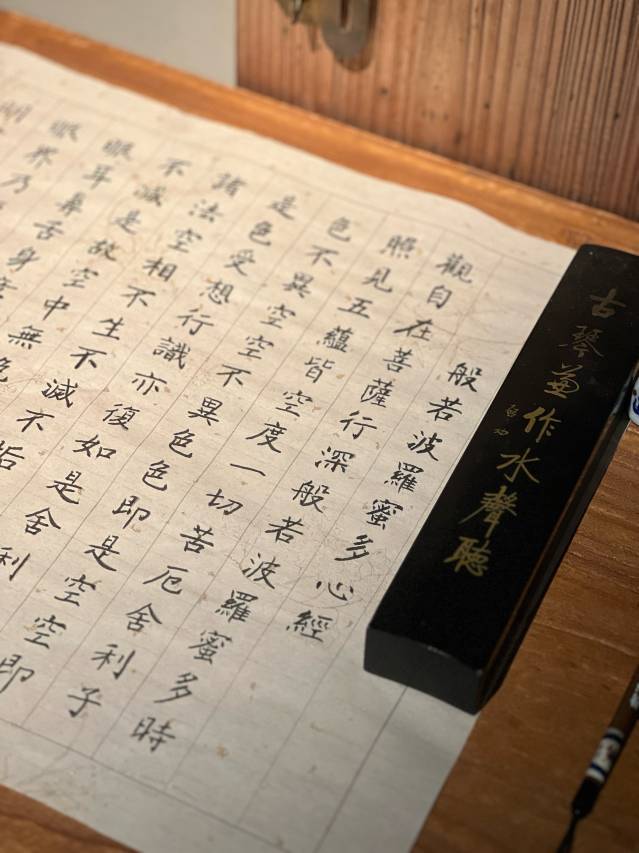 古琴兼作水聲聽
啓功
般若波羅蜜多心經
觀自在菩薩行深般若波羅蜜多時
照見五蘊皆空度一切苦厄舍利子
色不異空空不異色色即是空空即
是色受想行識亦復如是舍利
諸法空相不生不滅不垢
不減是故空中無色
眼耳鼻舌身意
眼界乃
明